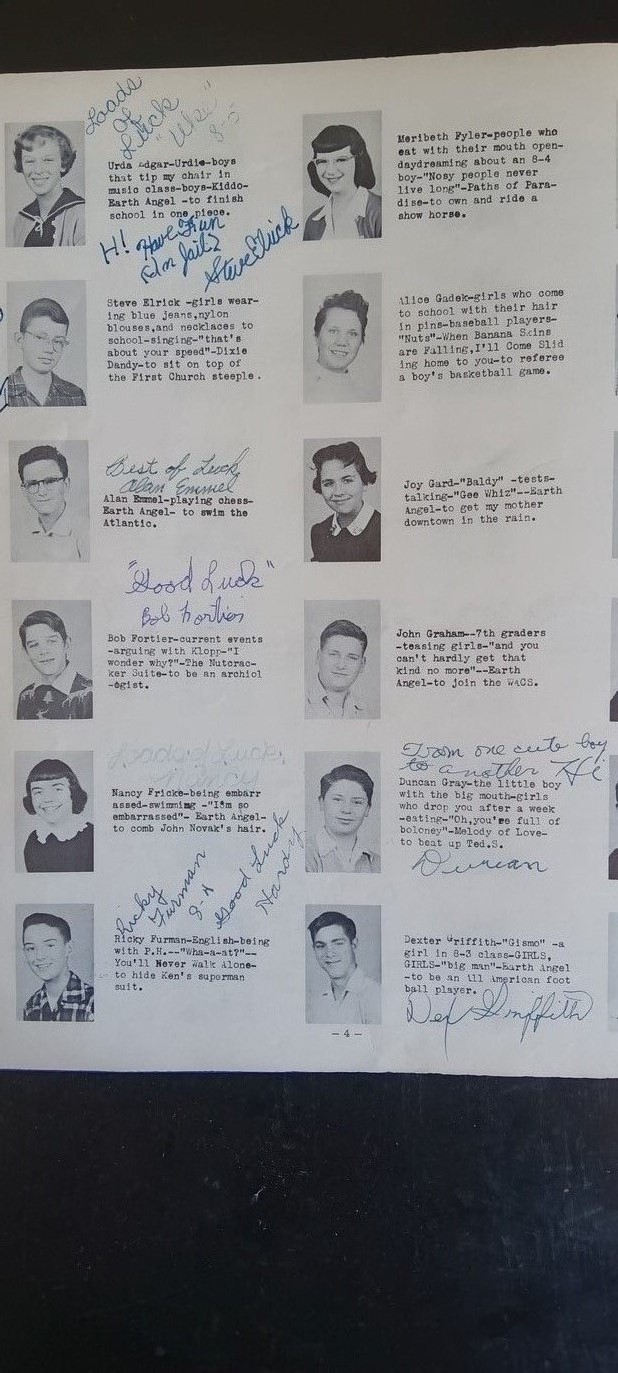 Loads
of
Luck
8-5
Urda Edgar-Urdie-boys
that tip my chair in
music class-boys-Kiddo-
Earth Angel -to finish
school in one piece.
H! Have Fun
In Jail?
Steve Elrick
Steve Elrick -girls wear-
ing blue jeans,nylon
blouses,and necklaces to
school-singing-"that's
about your speed"-Dixie
Dandy-to sit on top of
the First Church steeple.
Best of Luck
Alan Emmel
Alan Emmel-playing chess-
Earth Angel- to swim the
Atlantic.
"Good Luck"
Bob Fortier
Bob Fortier-current events
-arguing with Klopp-"I
wonder why?"-The Nutcrac-
ker Suite-to be an archiol
-ogist.
Loads of Luck,
Nancy
Nancy Fricke-being embarr
assed-swimming -"I'm so
embarrassed"- Earth Angel-
to comb John Novak's hair.
Ricky
Furman
8-4
Good Luck
Hardy
Ricky Furman-English-being
with P.H.--"Wha-a-at?"--
You'll Never Walk Alone-
to hide Ken's superman
suit.
Meribeth Fyler-people who
eat with their mouth open-
daydreaming about an 8-4
boy-"Nosy people never
live long"-Paths of Para-
dise-to own and ride a
show horse.
Alice Gadek-girls who come
to school with their hair
in pins-baseball players-
"Nuts"-When Banana Skins
are Falling,I'll Come Slid
ing home to you-to referee
a boy's basketball game.
Joy Gard-"Baldy" -tests-
talking-"Gee Whiz"--Earth
Angel-to get my mother
downtown in the rain.
John Graham--7th graders
-teasing girls-"and you
can't hardly get that
kind no more"--Earth
Angel-to join the WACS.
From one cute boy
to another Hi
Duncan Gray-the little boy
with the big mouth-girls
who drop you after a week
-eating-"Oh,you're full of
boloney"-Melody of Love-
to beat up Ted.S.
Duncan
Dexter Griffith-"Gismo" -a
girl in 8-3 class-GIRLS,
GIRLS-"big man"-Earth Angel
-to be an All American foot
ball player.
Dex Griffith
-4-